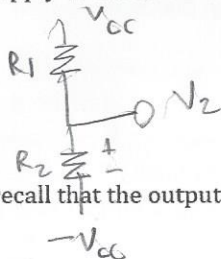 Vcc
R1
V2
R2 + -
recall that the output
-Vcc